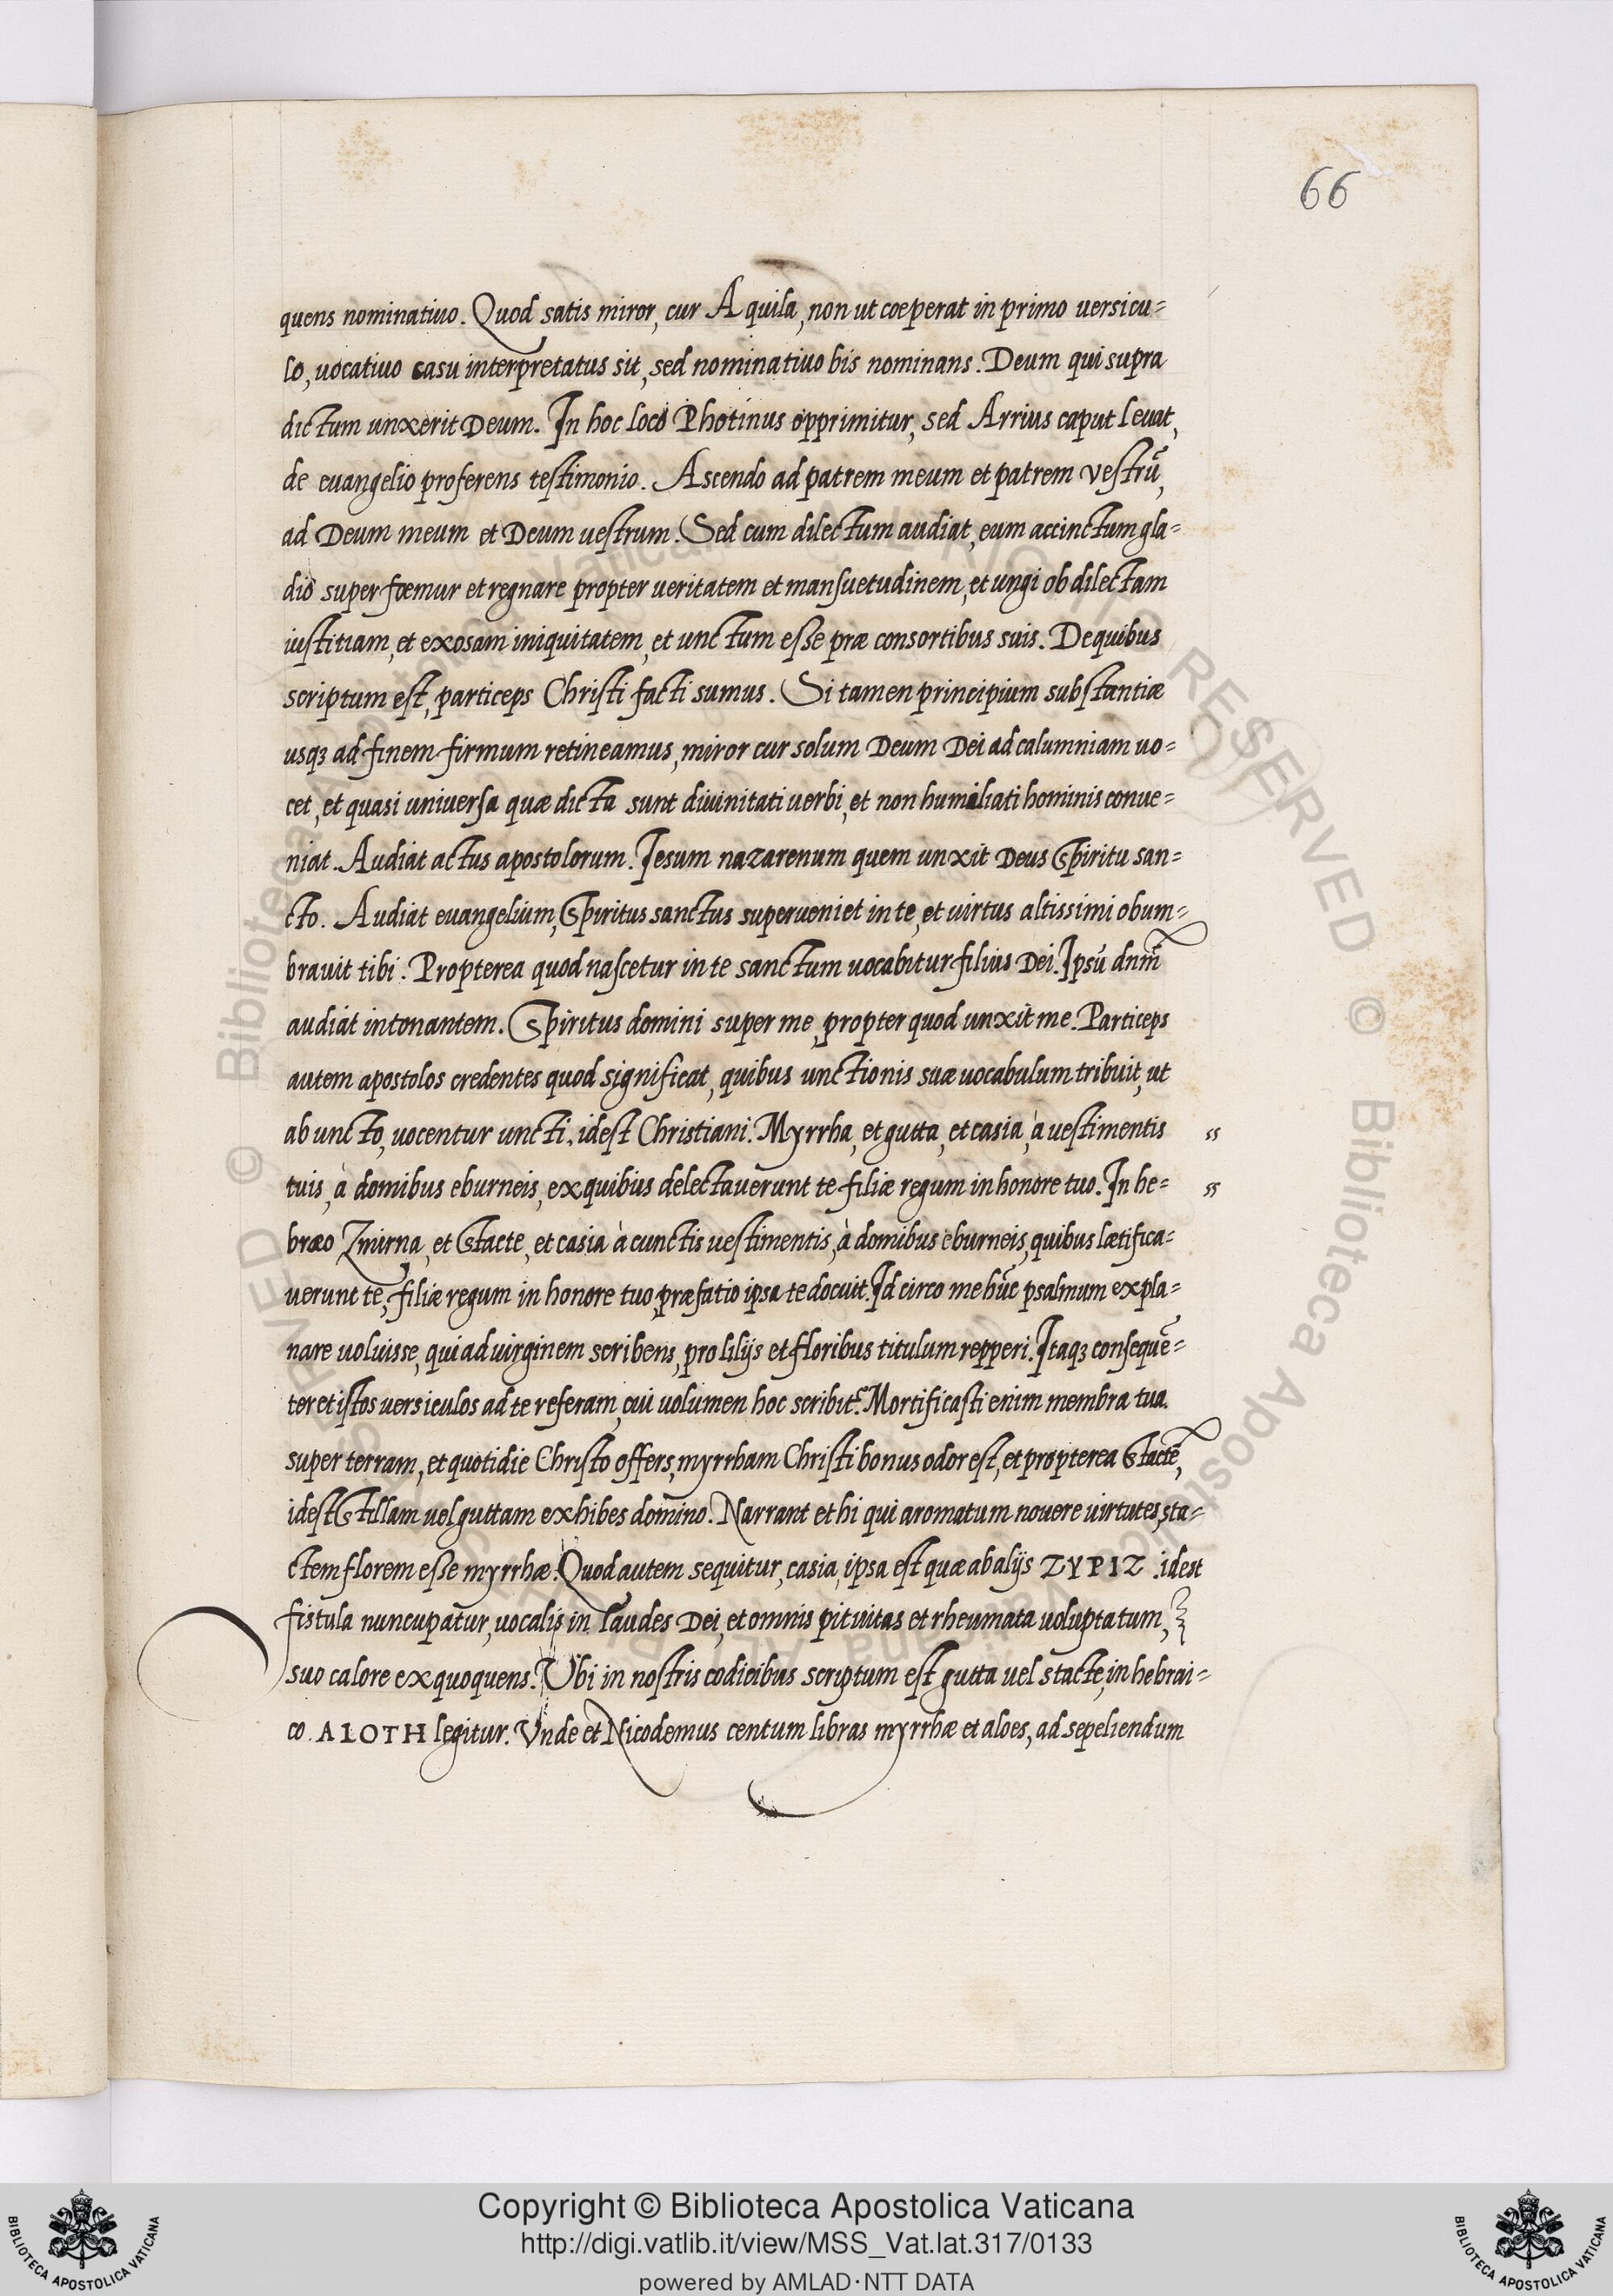 66
quens nominatiuo. Quod satis miror, cur Aquila, non ut coeperat in primo uersicu=
lo, uocatiuo casu interpretatus sit, sed nominatiuo bis nominans. Deum qui supra
dictum unxerit Deum. In hoc loco Photinus opprimitur, sed Arrius caput leuat,
de euangelio proferens testimonio. Ascendo ad patrem meum et patrem vestrũ,
ad Deum meum et Deum uestrum. Sed cum dilectum audiat, eum accinctum gla=
dio super fœmur et regnare propter ueritatem et mansuetudinem, et ungi ob dilectam
iustitiam, et exosam iniquitatem, et unctum esse præ consortibus suis. De quibus
scriptum est, particeps Christi facti sumus. Si tamen principium substantiæ
usqꝫ ad finem firmum retineamus, miror cur solum Deum Dei ad calumniam uo=
cet, et quasi uniuersa quæ dicta sunt diuinitati uerbi, et non humiliati hominis conue=
niat. Audiat actus apostolorum. Iesum nazarenum quem unxit Deus Spiritu san=
cto. Audiat euangelium, Spiritus sanctus superueniet in te, et uirtus altissimi obum=
brauit tibi. Propterea quod nascetur in te sanctum uocabitur filius Dei. Ipsũ dnm̃
audiat intonantem. Spiritus domini super me, propter quod unxit me. Particeps
autem apostolos credentes quod significat, quibus unctionis suæ uocabulum tribuit, ut
ab uncto, uocentur uncti, idest Christiani. Myrrha, et gutta, et casia, à uestimentis "
tuis, à domibus eburneis, ex quibus delectauerunt te filiæ regum in honore tuo. In he= "
bræo Zmirna, et Stacte, et casia à cunctis uestimentis, à domibus eburneis, quibus lætifica=
uerunt te, filiæ regum in honore tuo, præfatio ipsa te docuit. Id circo me hũc psalmum expla=
nare uoluisse, qui ad uirginem scribens, pro lilijs et floribus titulum repperi. Itaqꝫ consequẽ=
ter et istos uersiculos ad te referam, cui uolumen hoc scribit᷑. Mortificasti enim membra tua
super terram, et quotidie Christo offers, myrrham Christi bonus odor est, et propterea Stactẽ,
idest Stillam uel guttam exhibes domino. Narrant et hi qui aromatum nouere uirtutes, sta=
ctem florem esse myrrhæ. Quod autem sequitur, casia, ipsa est quæ ab alijs ZYPIZ. idest
fistula nuncupatur, uocalis in laudes Dei, et omnis pituitas et rheumata uoluptatum,
suo calore exquoquens. Ubi in nostris codicibus scriptum est gutta uel stacte, in hebrai=
co. AIOTH legitur. Vnde et Nicodemus centum libras myrrhæ et aloes, ad sepeliendum
Copyright © Biblioteca Apostolica Vaticana
http://digi.vatlib.it/view/MSS_Vat.lat.317/0133
powered by AMLAD·NTT DATA
BIBLIOTECA APOSTOLICA VATICANA
BIBLIOTECA APOSTOLICA VATICANA